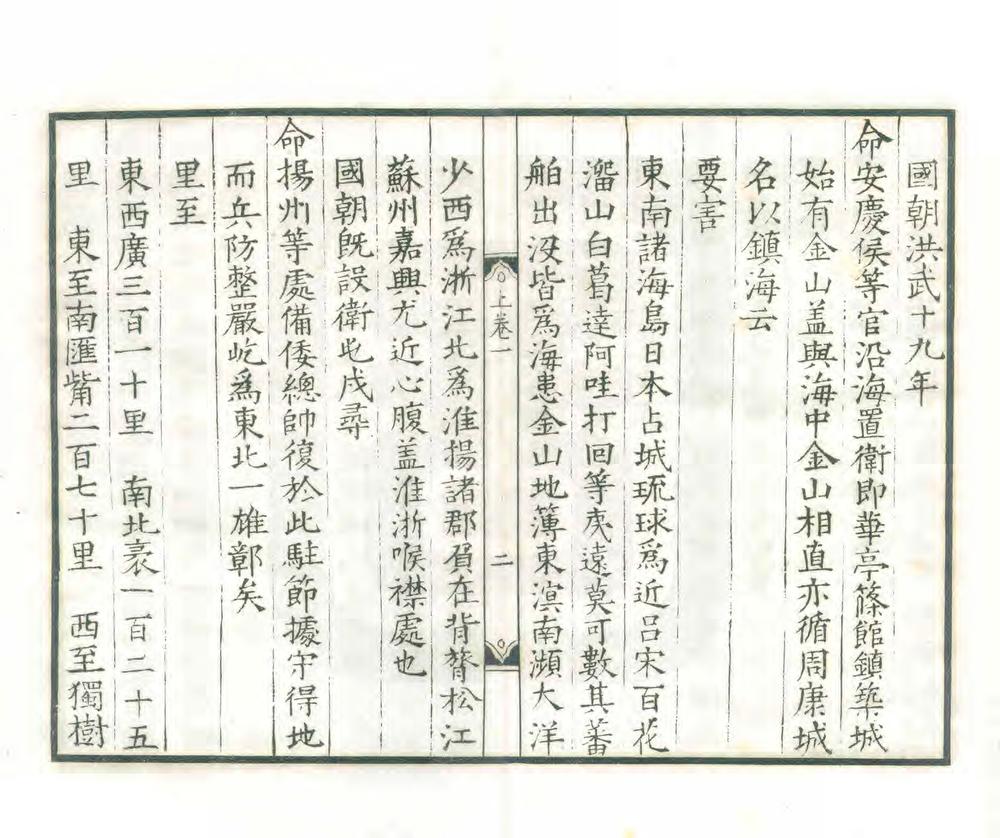 國朝洪武十九年
命安慶侯等官沿海置衛即華亭篠館鎮築城
始有金山盖與海中金山相直亦循周康城
名以鎮海云
要害
東南諸海島日本占城琉球為近吕宋百花
澑山白葛達阿哇打回等處遠莫可數其蕃
舶出没皆為海患金山地簿東溟南瀕大洋
上卷一
二
少西為浙江北為淮揚諸郡負在背膂松江
蘇州嘉興尤近心腹盖淮浙喉襟處也
國朝旣設衛屯戍尋
命揚州等處備倭總帥復於此駐節據守得地
而兵防整嚴屹為東北一雄鄣矣
里至
東西廣三百一十里 南北袤一百二十五
里 東至南匯觜二百七十里 西至獨樹